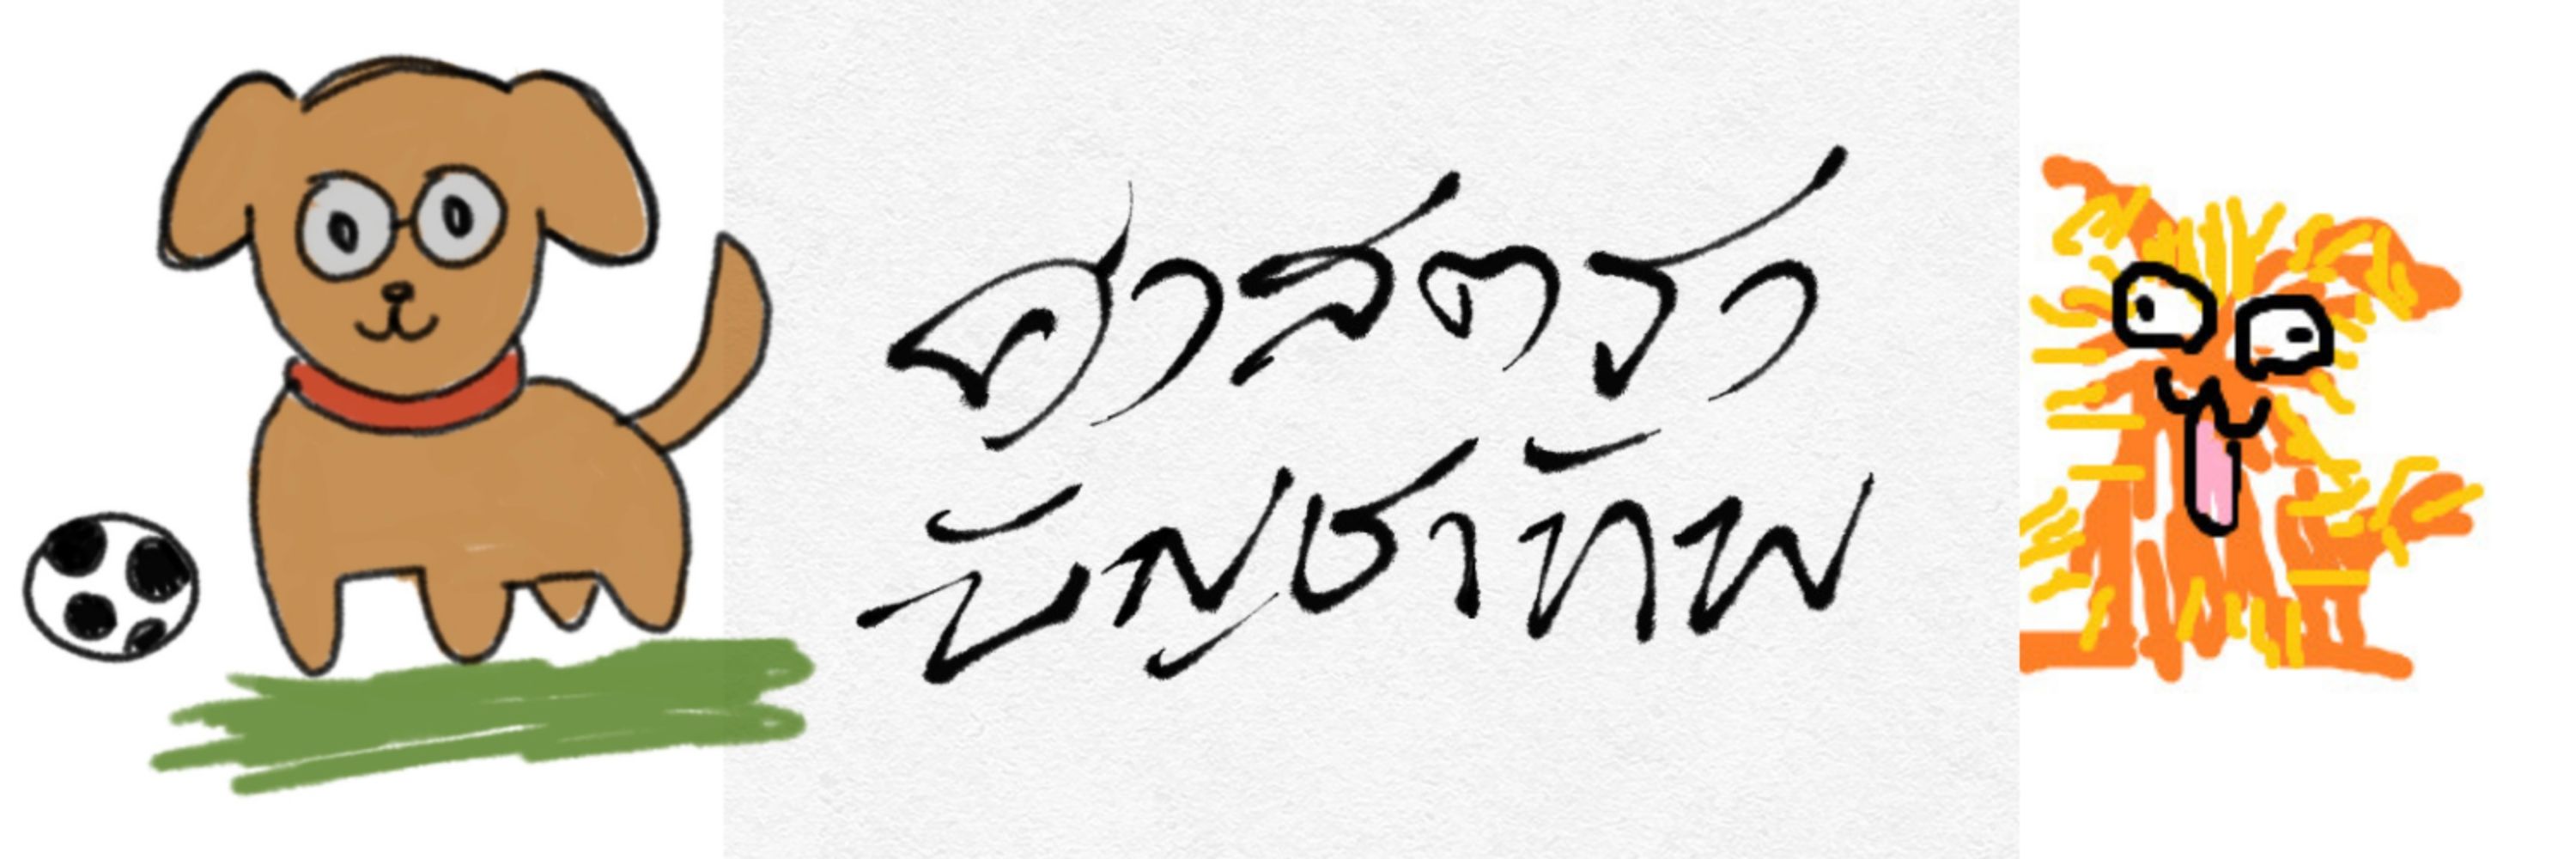 ศาสตรา
บัญชาทัพ